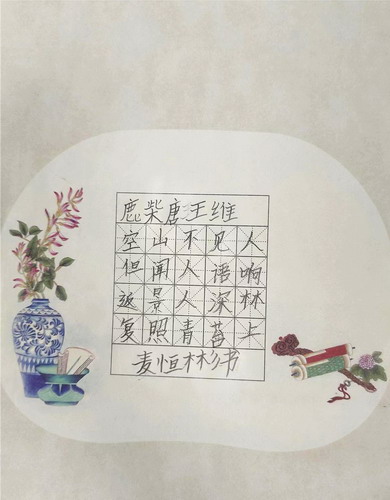 鹿柴唐王维
空山不见人
但闻人语响
返景人深林
复照青苔上
麦恒彬书